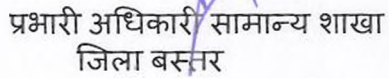 प्रभारी अधिकारी सामान्य शाखा
जिला बस्तर